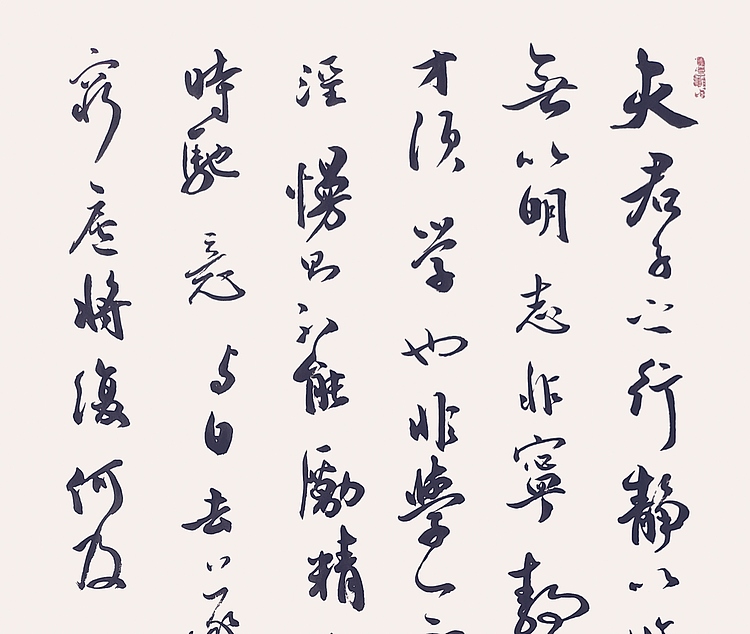 夫君子之行靜以
無以明志非寧靜
才須学也非學
淫慢則不能勵精
時馳意与日去
窮廬將復何及